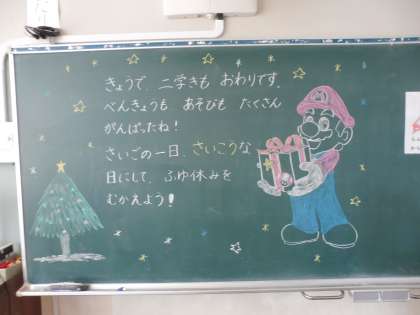 きょうで、二学きも おわりです。
べんきょうも あそびも たくさん
がんばったね！
さいごの一日、さいこうな
日にして、ふゆ休みを
むかえよう！
M